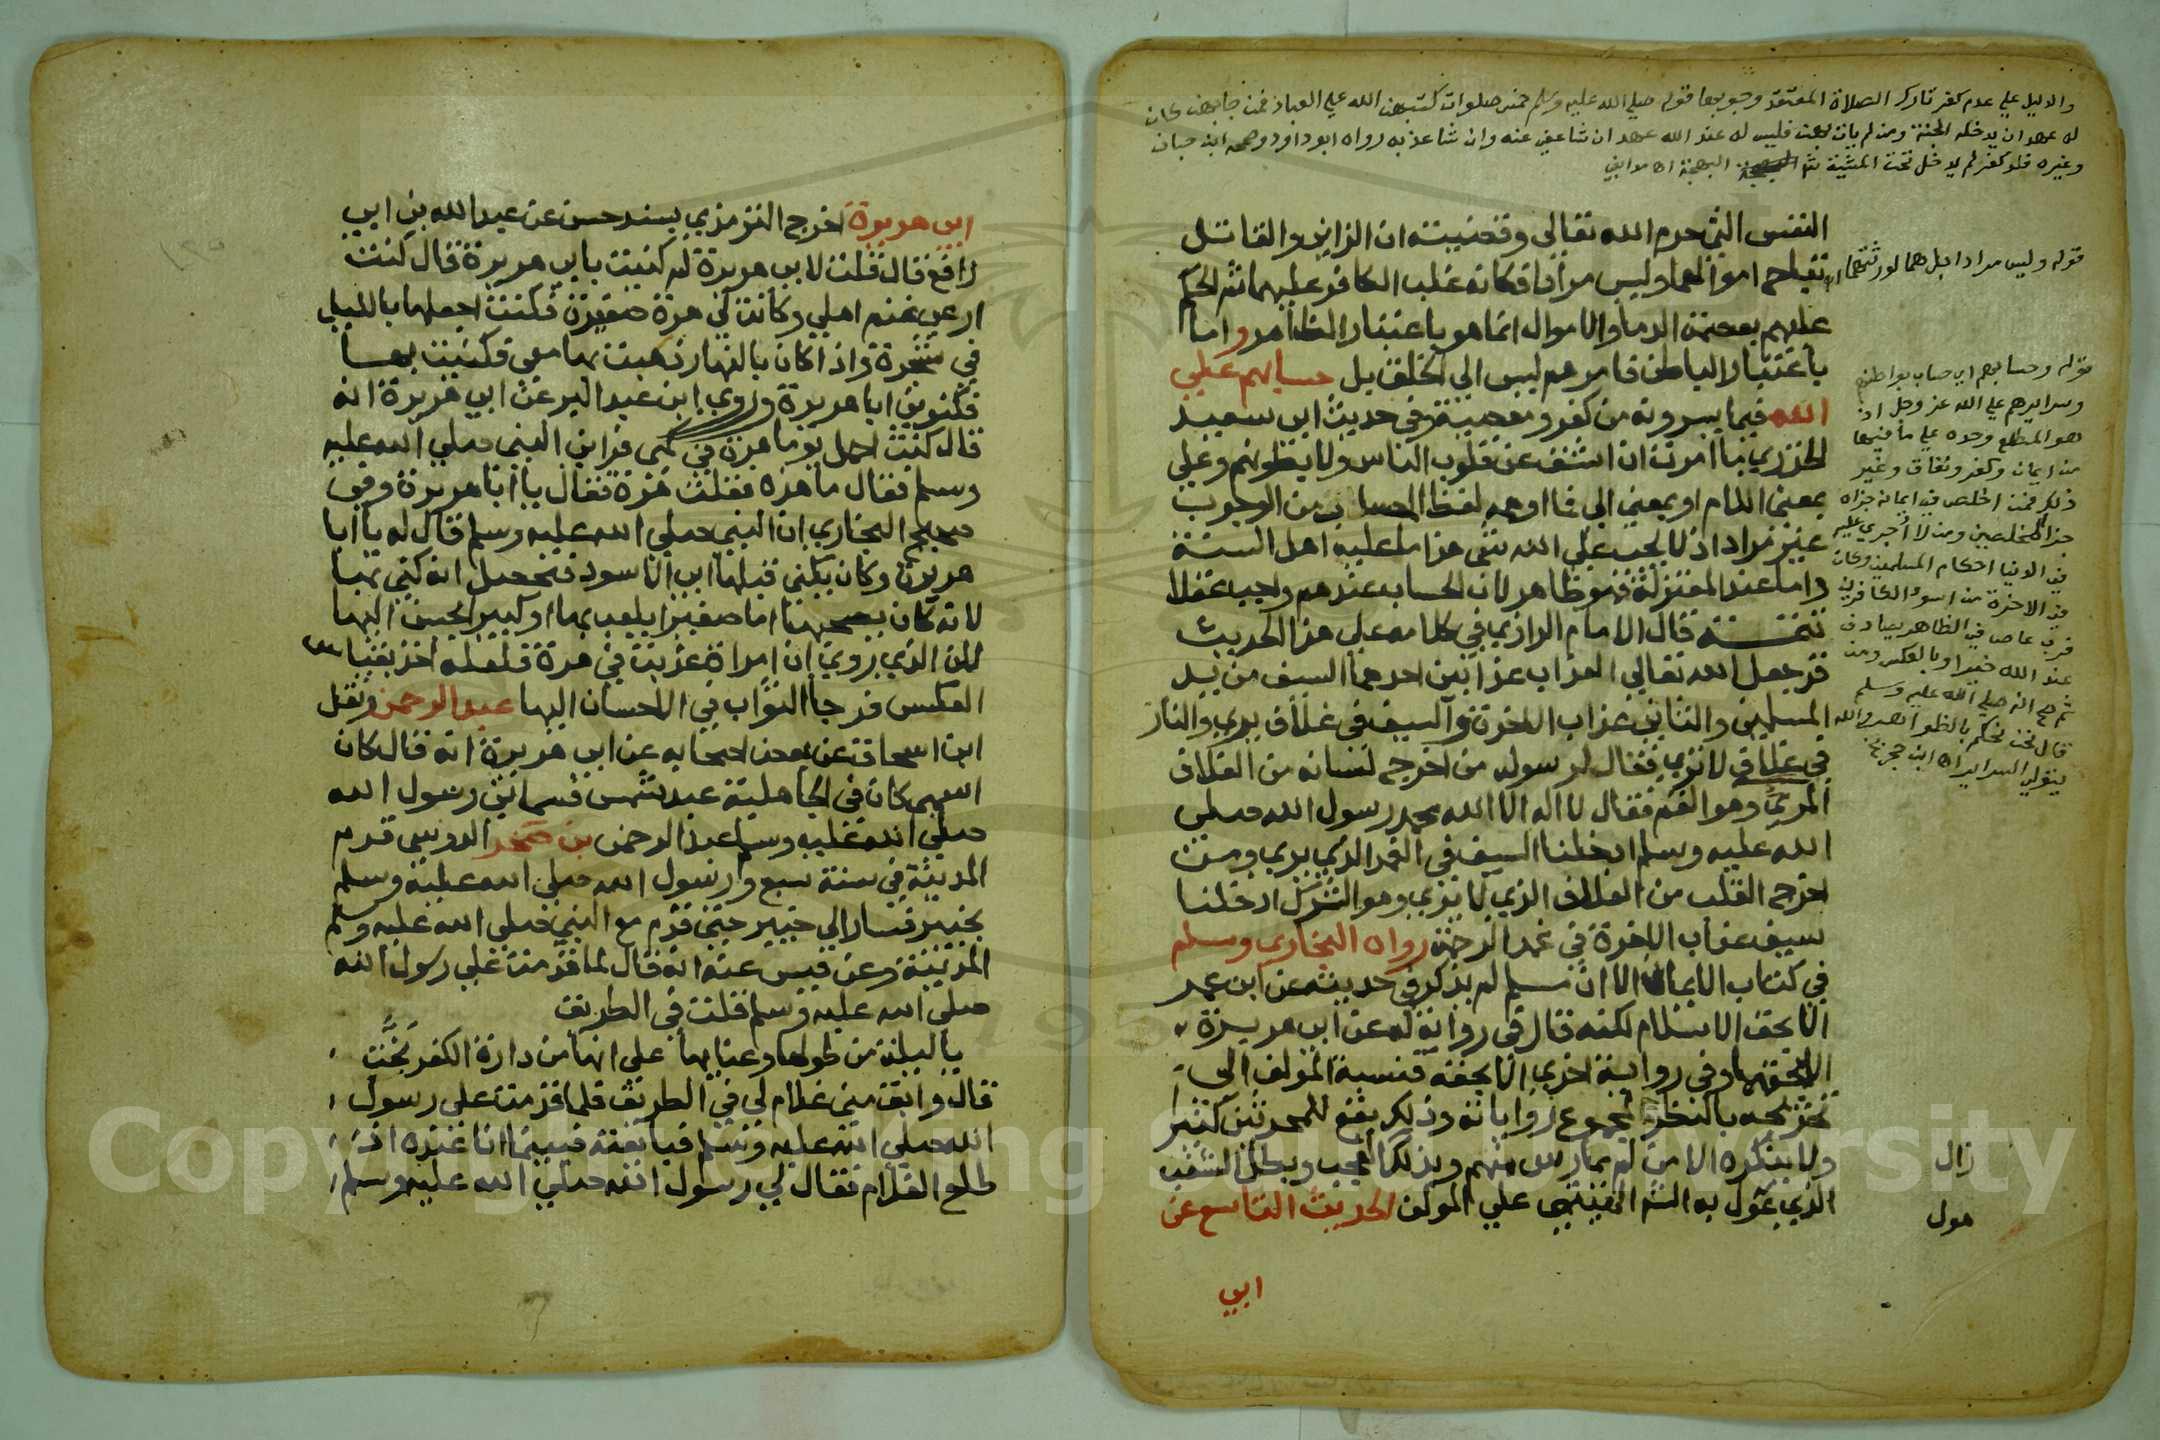 والدليل علي عدم كفر تارك الصلاة المعتقد وجوبها قوله صلي الله عليه وسلم خمس صلوات كتبهن الله علي العباد فمن جا بهن كان
له عهد ان يدخله الجنة ومن لم يات بهن فليس له عند الله عهد ان شا عفي عنه وان شا عذبه رواه ابو داود وصححه ابن حبان
وغيره فلو كفر لم يدخل تحت المشية
النفس التي حرم الله تعالي وقضيته ان الزاني والقاتل
تباح اموالهما وليس مرادا فكانه غلب الكافر عليهما ثم الحكم
عليهم بعصمة الدما والاموال انما هو باعتبار الظاهر واما
باعتبار الباطن فامرهم ليس الي الخلق بل حسابهم علي
الله فيما يسرونه من كفر ومعصية وفي حديث ابي سعيد
الخدري ما امرت ان اشق عن قلوب الناس ولا بطونهم وعلي
بمعني اللام او بمعني الي فما اوهمه لفظ الحساب من الوجوب
غير مراد اذ لا يجب علي الله شي هذا ما عليه اهل السنة
واما عند المعتزلة فهو ظاهر لان الحساب عندهم واجب عقلا
تتمة قال الامام الرازي في كلامه علي هذا الحديث
قد جعل الله تعالي العذاب عذابين احدهما السيف من يد
المسلمين والثاني عذاب الاخرة والسيف في غلاف يري والنار
في غلاف لا تري فقال لرسوله من اخرج لسانه من الغلاف
المرئي وهو الفم فقال لا اله الا الله محمد رسول الله صلي
الله عليه وسلم ادخلنا السيف في الغمد الذي يري ومن
اخرج القلب من الغلاف الذي لا يري وهو الشرك ادخلنا
سيف عذاب الاخرة في غمد الرحمة رواه البخاري ومسلم
في كتاب الايمان الا ان مسلم لم يذكر في حديثه عن ابن عمر
الا بحق الاسلام لكنه قال في رواية له عن ابي هريرة
الا بحقها وفي رواية اخري الا بحقه فنسبة المولف الي
تخريجه بالنظر لمجموع رواياته وذلك يقع للمحدثين كثيرا
ولا ينكره الا من لم يمارس منهم وبذلك وبطل الشغب
الذي به علي المولف الحديث التاسع عن
ابي
قوله وليس مرادا بل هما لورثتهما
قوله وحسابهم اي حساب بواطنهم
وسرايرهم علي الله عز وجل اذ
هو المطلع وحده علي ما فيها
من ايمان وكفر ونفاق وغير
ذلك فمن اخلص في ايمانه جزاه
جزا المخلصين ومن لا اجري عليه
في الدنيا احكام المسلمين وكان
في الاخرة من اسوء الكافرين
فرب عاص في الظاهر يصادف
عند الله خيرا وبالعكس ومن
ثم صح انه صلي الله عليه وسلم
قال نحن نحكم بالظواهر والله
يتولي السراير اه ابن حجر
زال
ابي هريرة اخرج الترمذي بسند حسن عن عبد الله بن ابي
رافع قال قلت لابي هريرة لم كنيت بابي هريرة قال كنت
ارعي غنم اهلي وكانت لي هرة صغيرة فكنت اجعلها بالليل
في شجرة واذا كان بالنهار ذهبت بها معي فكنيت بها
فكنوني ابا هريرة وروي ابن عبد البر عن ابي هريرة انه
قال كنت احمل يوما هرة في كمي فراني النبي صلي الله عليه
وسلم فقال ما هذه فقلت هرة فقال يا ابا هريرة وفي
صحيح البخاري ان النبي صلي الله عليه وسلم قال له يا ابا
هريرة وكان يكني قبلها ابا الاسود فتحصل انه كني بها
لانه كان يصحبها اما صغيرا يلعب بها او كبيرا يحسن اليها
لان الذي روي ان امراة عذبت في هرة فلعله اخذ بقياس
العكس فرجا الثواب في الاحسان اليها عبد الرحمن ونقل
ابن اسحاق عن بعض اصحابه عن ابي هريرة انه قال كان
اسمي كان في الجاهلية عبد شمس فسماني رسول الله
صلي الله عليه وسلم عبد الرحمن بن صخر الدوسي قدم
المدينة في سنة سبع ورسول الله صلي الله عليه وسلم
بخيبر فسار الي خيبر حتي قدم مع النبي صلي الله عليه وسلم
المدينة وعن قيس عنه انه قال لما قدمت علي رسول الله
صلي الله عليه وسلم قلت في الطريق
يا ليلة من طولها وعنايها علي انها من دارة الكفر نجت
قال وابق مني غلام لي في الطريق فلما قدمت علي رسول
الله صلي الله عليه وسلم فبايعته فبينما انا عنده اذ
طلع الغلام فقال لي رسول الله صلي الله عليه وسلم
Copyright © King Saud University